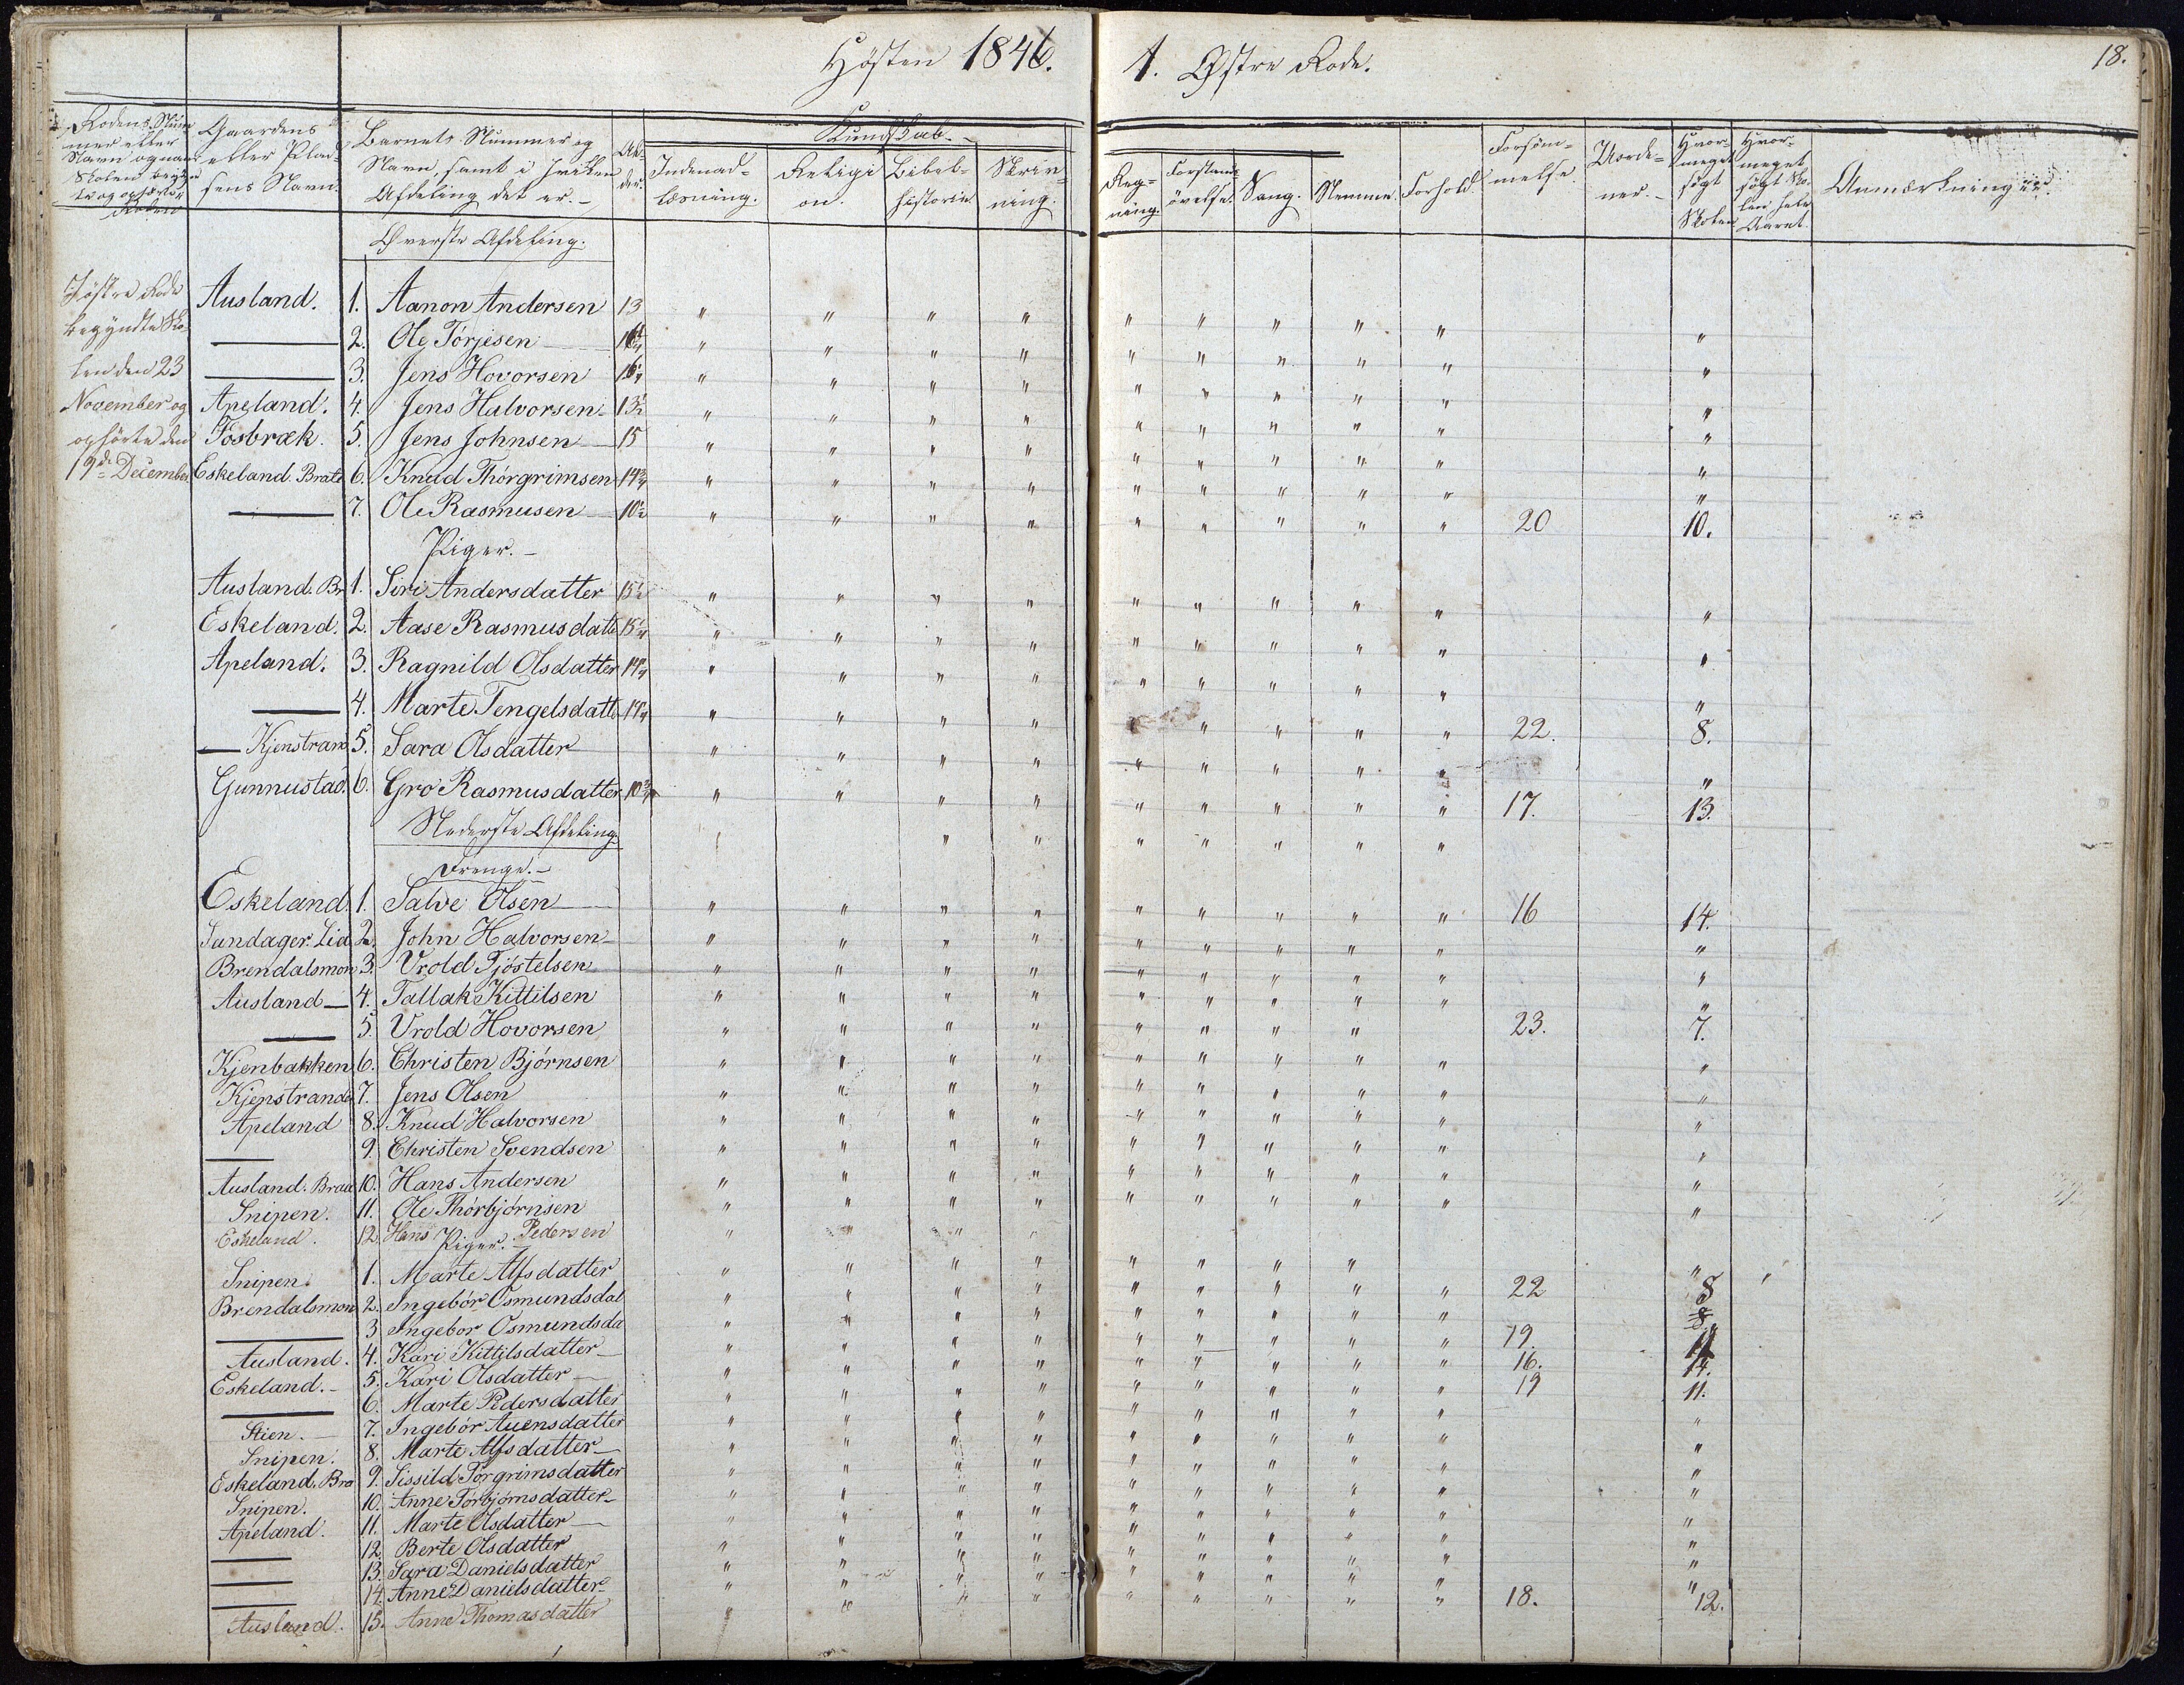 Høsten 1846.
1. Østre Rode.
18.
Rodens Num-
mer eller
Navn og naar
Skolen begyn
te og ophørte i
Roden
Gaardens
eller Plad-
sens Navn.
Barnets Nummer og
Navn, samt i hvilken
Afdeling det er. -
Al-
der.
Kundskab.
Indenad-
læsning.
Religi
on.
Bibel-
historie
Skriv-
ning.
Reg-
ning.
Forstands-
øvelse.
Sang.
Stemme.
Forhold.
Forsøm-
melse.
Uorde-
ner. -
Hvor-
meget
søgt
Skolen
Hvor-
meget
søgt Sko-
len hele
Aaret.
Anmærkninger.
Øverste Afdeling.
I østre Rode
begyndte Sko-
len den 23
November og
ophørte den
19de December.
Ausland. 1. Aanon Andersen 13 " " " " " " " " " "
— 2. Ole Törjesen " " " " " " " " " "
— 3. Jens Hovorsen " " " " " " " " " "
Apeland. 4. Jens Halvorsen 13½ " " " " " " " " " "
Fosbræk. 5. Jens Johnsen 15 " " " " " " " " " "
Eskeland. Brate 6. Knud Thörgrimsen 14¾ " " " " " " " " " "
— 7. Ole Rasmusen 10½ " " " " " " " " " 20 10.
Piger. -
Ausland. Br 1. Siri Andersdatter 15½ " " " " " " " " " "
Eskeland. 2. Aase Rasmusdatte 15¼ " " " " " " " " " "
Apeland. 3. Ragnild Olsdatter " " " " " " " " " "
— 4. Marte Tengelsdatte " " " " " " " " 22. 8.
— Kjenstran 5. Sara Olsdatter " " " " " " " " " "
Gunnustad. 6. Gro Rasmusdatter 10¾ " " " " " " " " " 17. 13.
Nederste Afdeling.
Drenge. -
Eskeland. 1. Salve Olsen " " " " " " " " " 16 14.
Sundager. Lia 2. John Halvorsen " " " " " " " " " "
Brendalsmon 3. Vrold Tjöstelsen " " " " " " " " " "
Ausland 4. Tallak Kittilsen " " " " " " " " " "
— 5. Vrold Hovorsen " " " " " " " " 23. 7.
Kjenbakken 6. Christen Björnsen " " " " " " " " " "
Kjenstrande 7. Jens Olsen " " " " " " " " " "
Apeland 8. Knud Halvorsen " " " " " " " " " "
— 9. Christen Svendsen " " " " " " " " " "
Ausland. Brau 10. Hans Andersen " " " " " " " " " "
Snipen. 11. Ole Thörbjörnsen " " " " " " " " " "
Eskeland. 12. Hans Pedersen " " " "
Piger.
Snipen. 1. Marte Alfsdatter " " " " " " " " "
Brendalsmon 2. Ingebör Osmundsdat " " " " " " " " " 22 8
— 3 Ingebor Osmundsda " " " " " " " " " 8.
Ausland. 4. Kari Kittilsdatter " " " " " " " " " 19. 11
Eskeland. - 5. Kari Olsdatter " " " " " " " " " 16. 14.
— 6. Marte Pedersdatter " " " " " " " " " 19 11.
Stien. - 7. Ingebör Auensdatter " " " " " " " " " "
Snipen. 8. Marte Alfsdatter " " " " " " " " " "
Eskeland, Bra 9. Sissild Torgrimsdatter " " " " " " " " " "
Snipen. 10. Anne Torbjörnsdatter " " " " " " " " " "
Apeland. 11. Marte Olsdatter " " " " " " " " " "
— 12. Berte Olsdatter " " " " " " " " " "
— 13. Sara Danielsdatter " " " " " " " " " "
— 14. Anne Danielsdatter " " " " " " " " " "
Ausland. 15. Anne Thomasdatter " " " " " " " " " 18. 12.